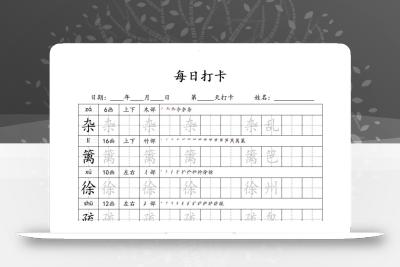 每日打卡
日期：____年____月____日 第____天打卡 姓名：________
zá 6画 上下 木部
杂 杂 杂 杂乱
lí 16画 上下 竹部
篱 篱 篱 篱笆
xú 10画 左右 彳部
徐 徐 徐 徐州
shū 12画 左右
疏 疏 疏